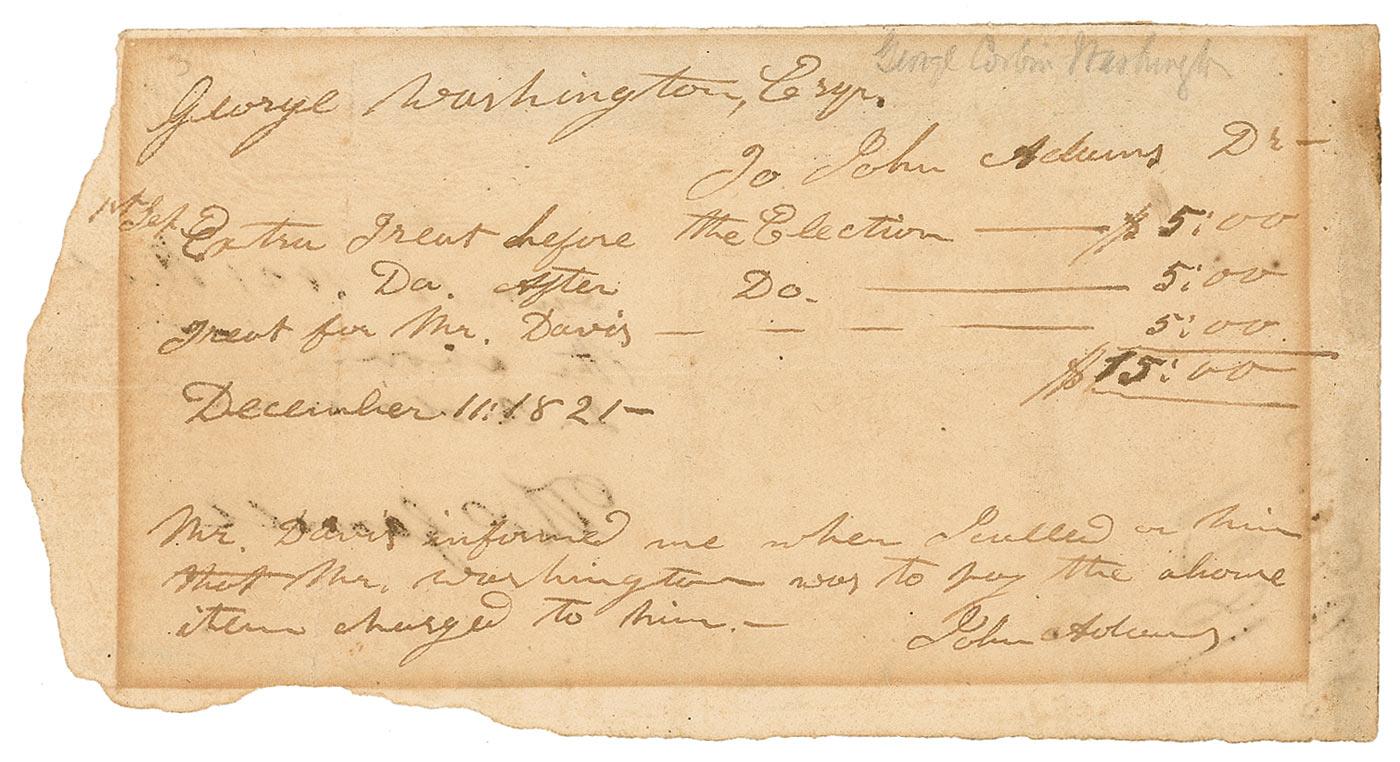 3
George Corbin Washington
George Washington, Esqr.
To John Adams Dr -
1st Sep. Extra Treat before the Election — $ 5:00
Do. After Do. — 5:00
Treat for Mr. Davis — — — — 5:00
$ 15:00
December 11: 1821 —
Mr. Davis informed me when I called on him
that Mr. Washington was to pay the above
item charged to him. —
John Adams